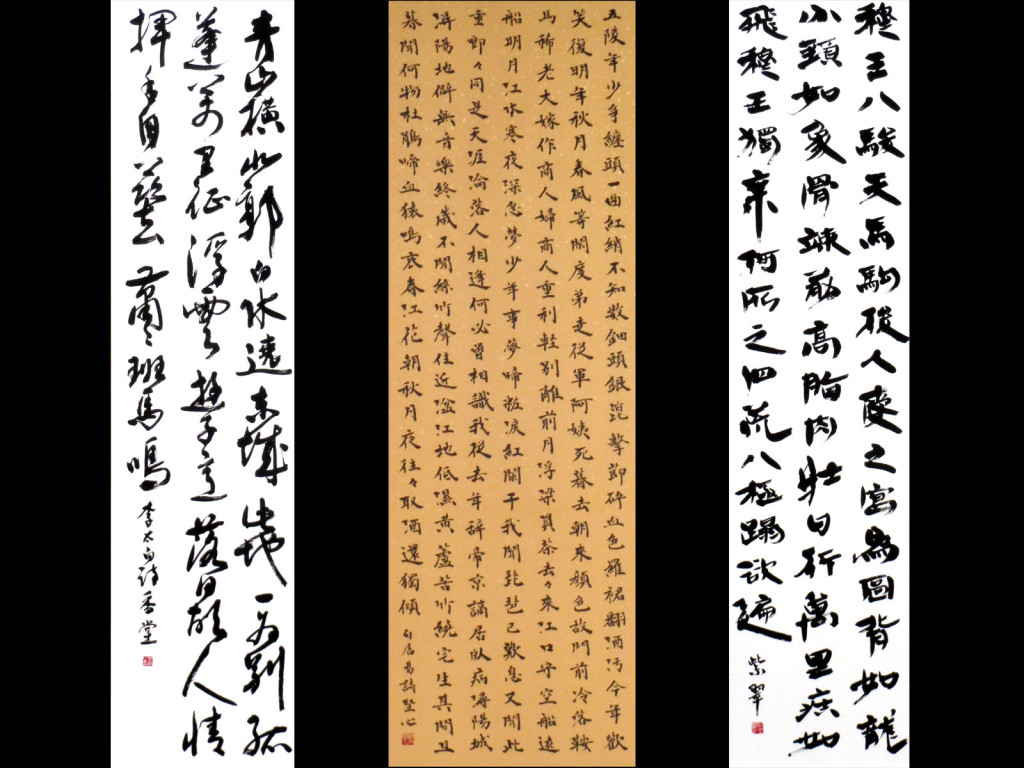 穆王八駿天馬駒後人愛之寫為圖背如龍
兮頸如象骨竦筋高脂肉壮日行萬里疾如
飛穆王獨乗何所之四荒八極蹋欲遍
紫翠
五陵年少争纏頭一曲紅綃不知数鈿頭銀箆撃節砕血色羅裙翻酒汚今年歓
笑復明年秋月春風等閑度弟走従軍阿姨死暮去朝来顔色故門前冷落鞍
馬稀老大嫁作商人婦商人重利軽別離前月浮梁買茶去々来江口守空船遶
船明月江水寒夜深忽夢少年事夢啼粧涙紅闌干我聞琵琶已歎息又聞此
重喞々同是天涯淪落人相逢何必曽相識我従去年辞帝京謫居臥病潯陽城
潯陽地僻無音樂終歳不聞絲竹聲住近湓江地低濕黄蘆苦竹繞宅生其間旦
暮聞何物杜鵑啼血猿鳴哀春江花朝秋月夜往々取酒還獨傾
白居易詩堅心
青山横北郭白水遶東城此地一為別孤
蓬萬里征浮雲遊子意落日故人情
揮手自茲去蕭々班馬鳴
李太白詩香堂